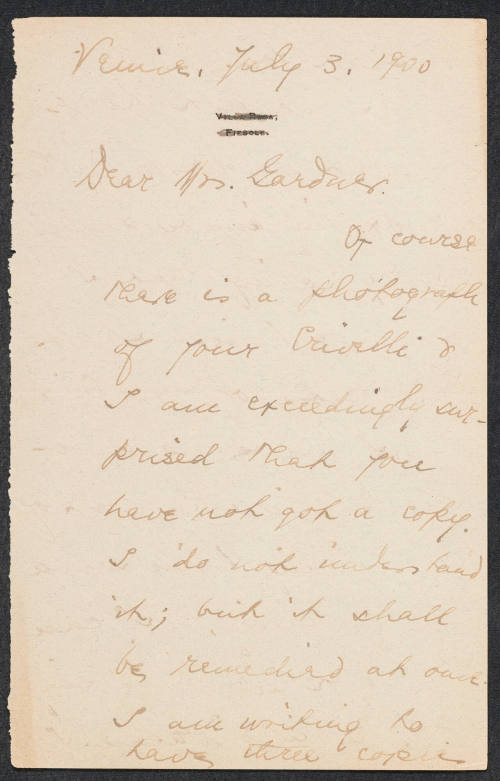 Venice. July 3. 1900
Villa Rosa,
Fiesole.
Dear Mrs. Gardner.
Of course
there is a photograph
of your Crivelli &
I am exceedingly sur-
prised that you
have not got a copy.
I do not understand
it; but it shall
be remedied at once.
I am writing to
have three copies